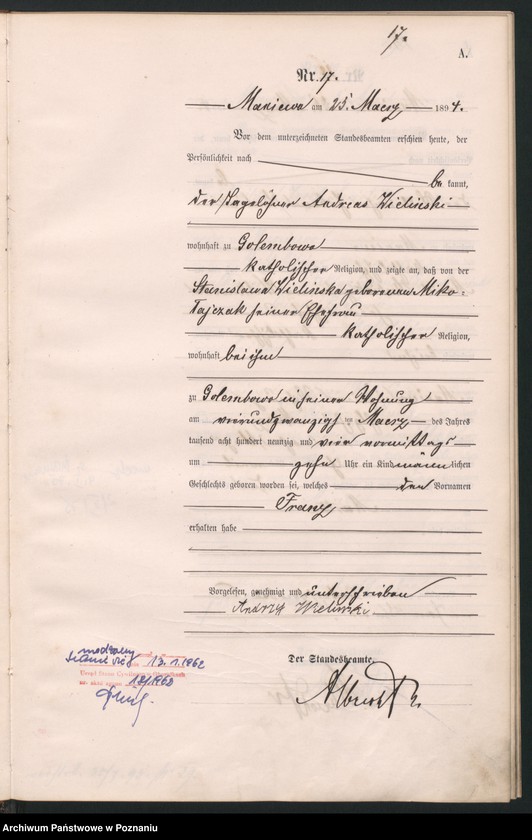 17.
A.
Nr. 17.
Maniewo am 25. Maerz 1894.
Vor dem unterzeichneten Standesbeamten erschien heute, der
Persönlichkeit nach
be kannt,
der Tagelöhner Andreas Wieliński
wohnhaft zu Golembowo
katholischer Religion, und zeigte an, daß von der
Stanislawa Wielińska geborenen Miko-
łajczak seiner Ehefrau
katholischer Religion,
wohnhaft bei ihm
zu Golembowo in seiner Wohnung
am vierundzwanzigsten Maerz des Jahres
tausend acht hundert neunzig und vier vormittags
um zehn Uhr ein Kind männlichen
Geschlechts geboren worden sei, welches den Vornamen
Franz
erhalten habe
Vorgelesen, genehmigt und unterschrieben
Andrzy Wielinski
Der Standesbeamte.
Albrecht
13.1.1962
Urząd Stanu Cywilnego
Archiwum Państwowe w Poznaniu